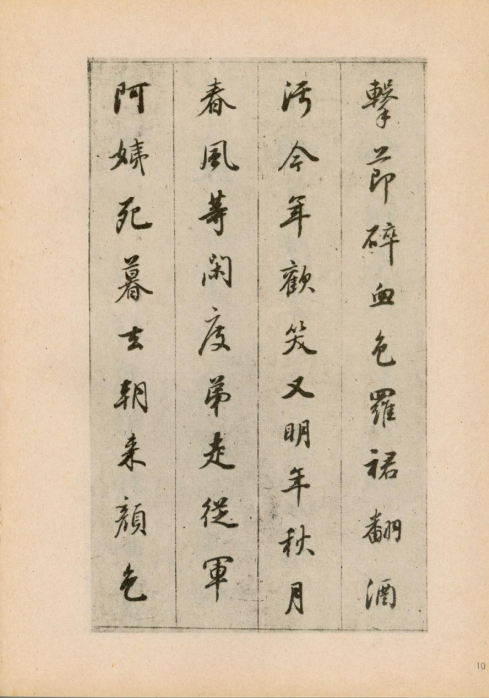 擊節碎血色羅裙翻酒
污今年歡笑又明年秋月
春風等閑度弟走從軍
阿姨死暮去朝来顏色
10